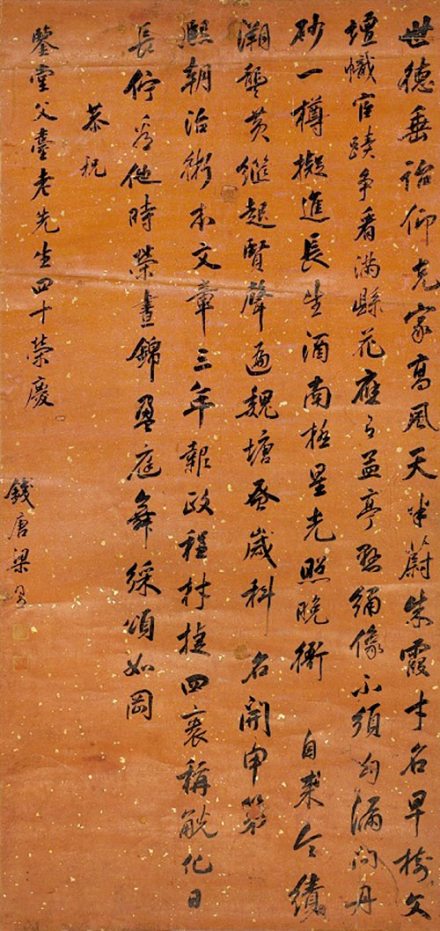 世德垂詒仰克家高風天半蔚朱霞才名早樹文
壇幟官蹟爭看滿縣花應與益亭酌繡像不須句漏問丹
砂一樽擬進長生酒南極星光照晚衙 自製令績
溯龔黄繼起賢聲遍魏塘癸歲科名開甲第
熙朝治術本文章三年報政程材捷四袠稱觥化日
長佇看他時榮晝錦盈庭舞綵頌如岡
恭祝
鑒堂父臺老先生四十榮慶
錢唐梁